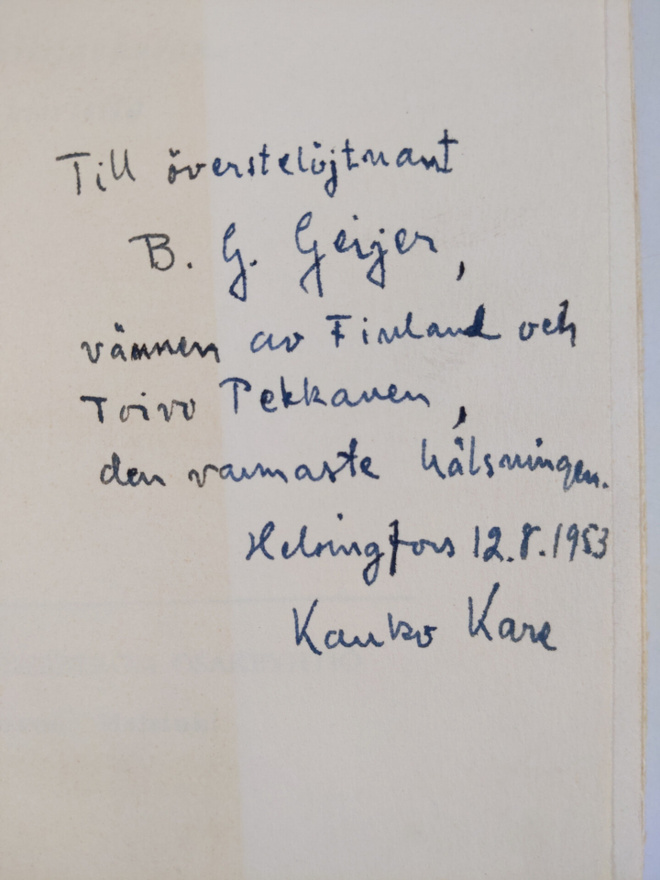 Till överstelöjtnant
B. G. Geijer,
vännen av Finland och
Toivo Pekkanen,
den varmaste hälsningen.
Helsingfors 12.8.1953
Kauko Kare